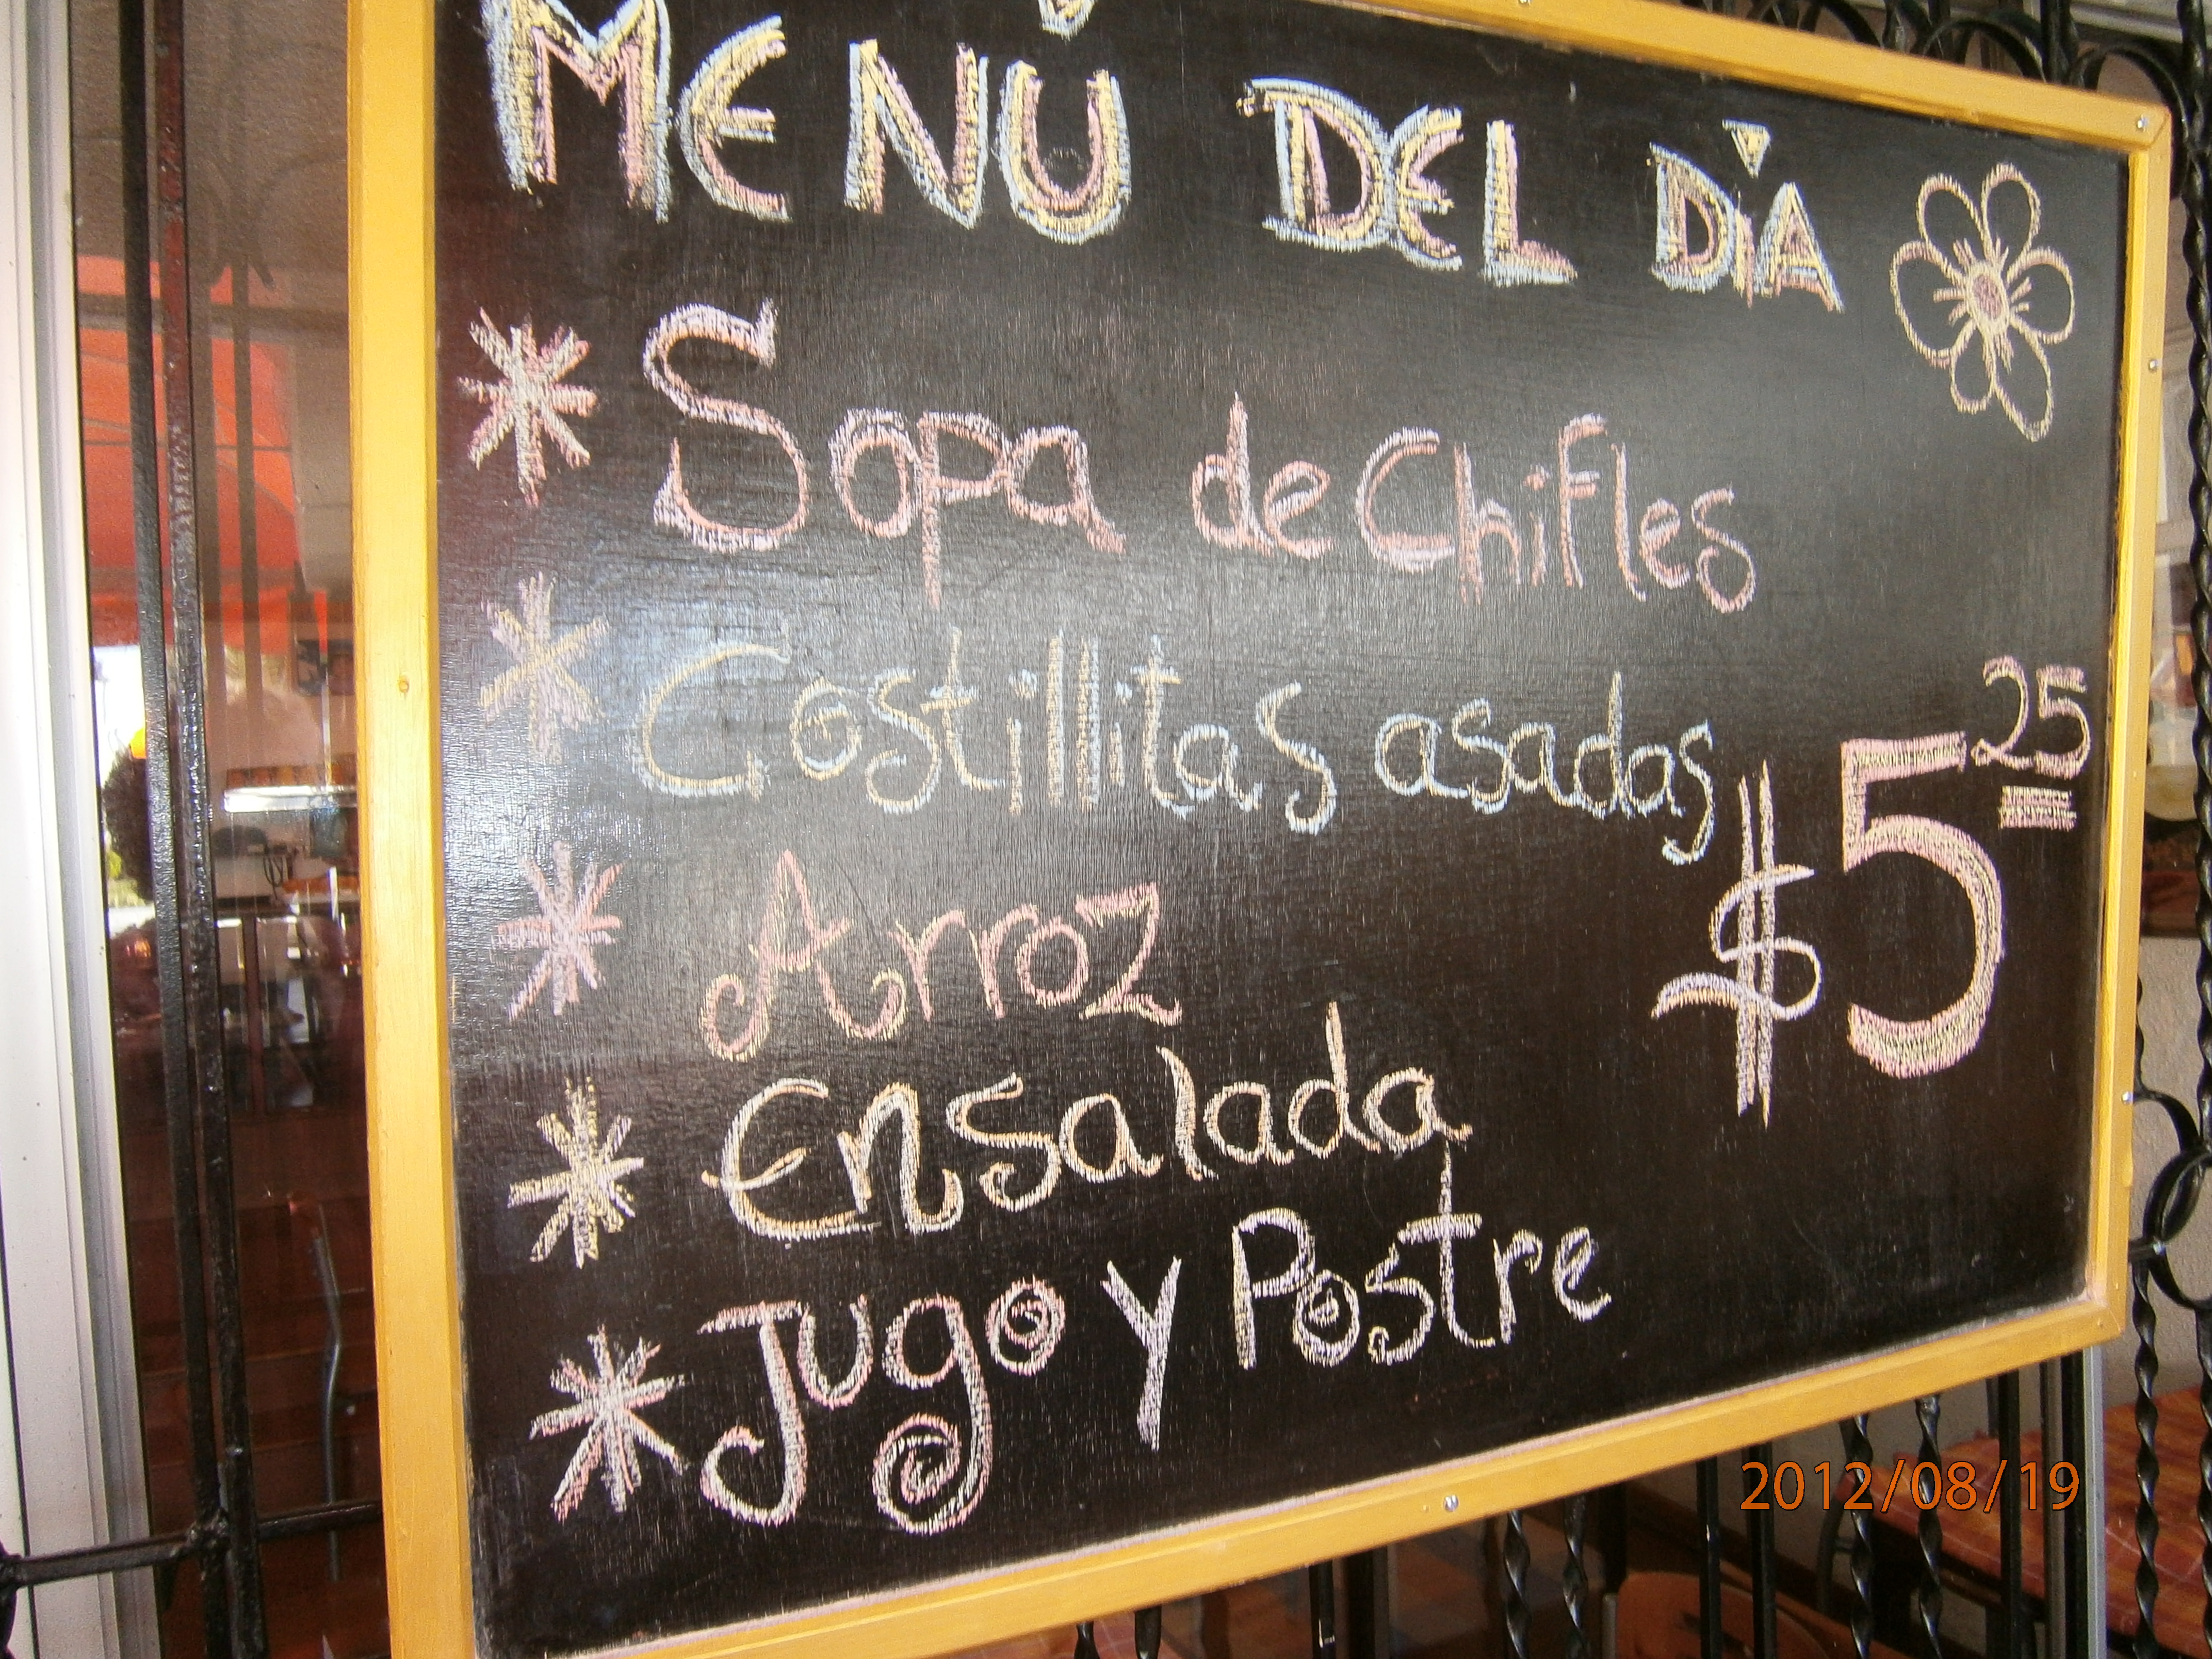 MENÚ DEL DÍA
* Sopa de Chifles
* Costillitas asadas
$5 25
* Arroz
* Ensalada
* Jugo y Postre
2012/08/19